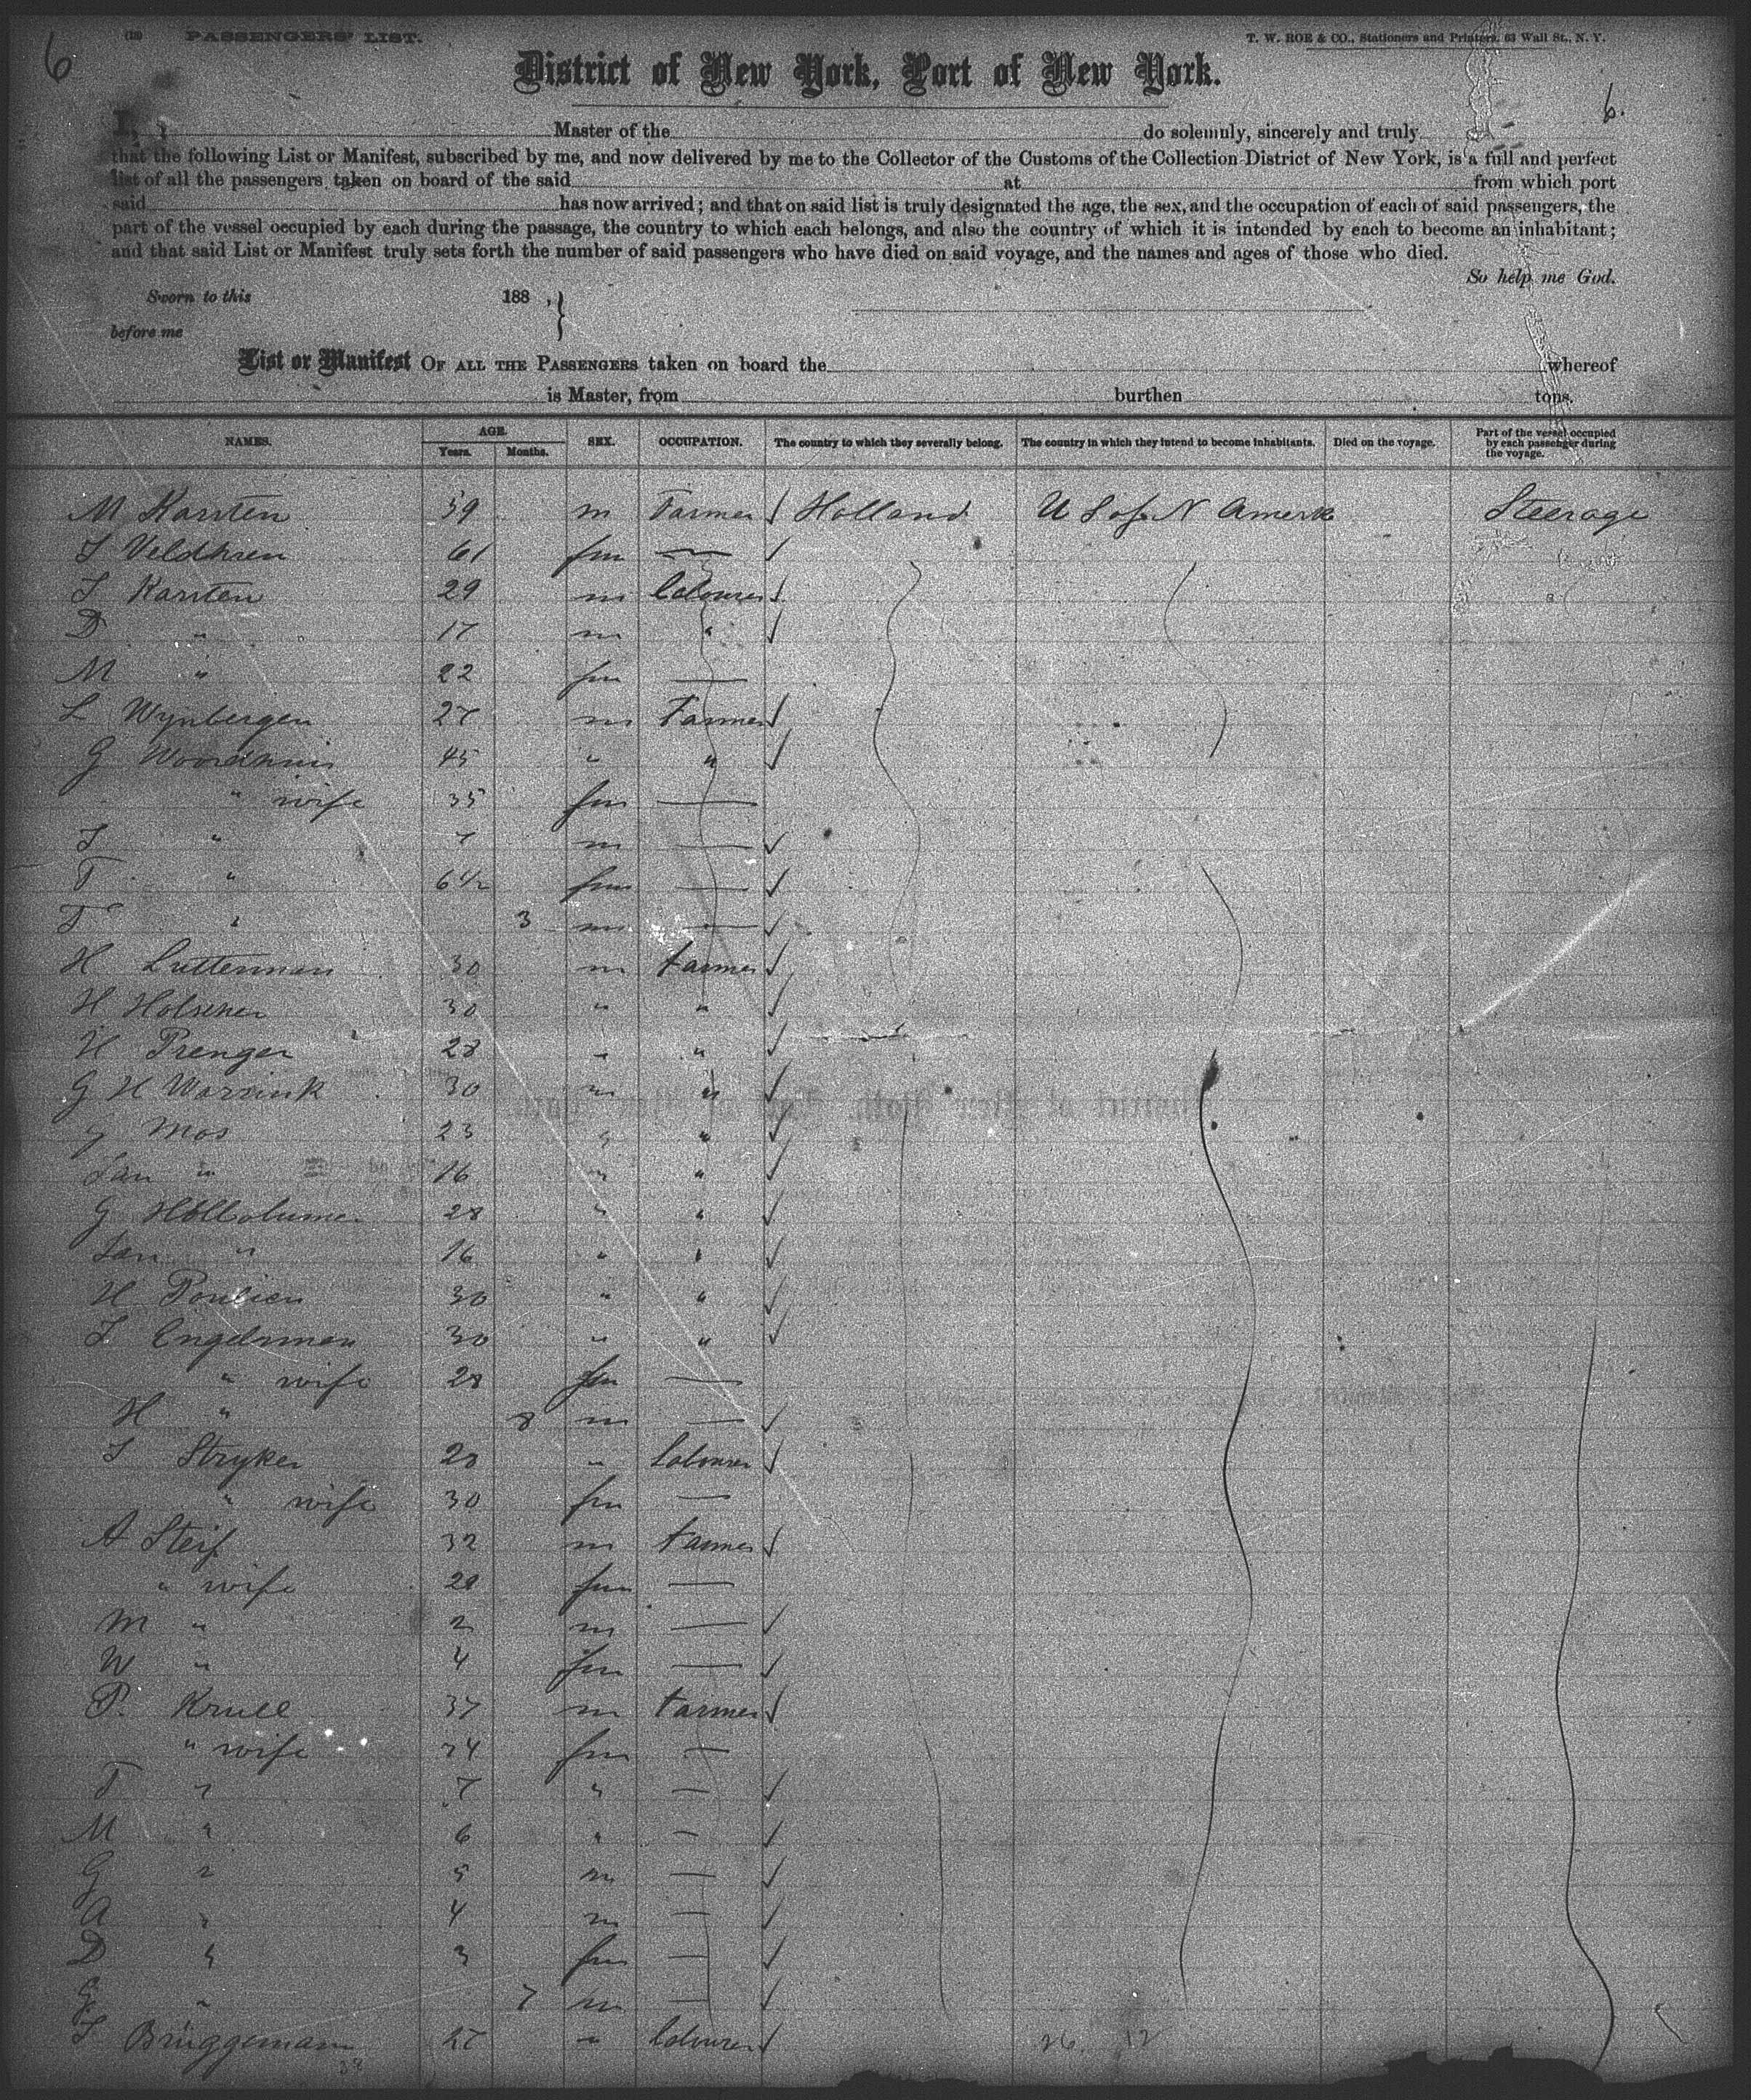 6
(18) PASSENGERS' LIST.
T. W. ROE & CO., Stationers and Printers, 63 Wall St., N. Y.
District of New York, Port of New York.
6.
I, Master of the do solemnly, sincerely and truly
that the following List or Manifest, subscribed by me, and now delivered by me to the Collector of the Customs of the Collection District of New York, is a full and perfect
list of all the passengers taken on board of the said at from which port
said has now arrived; and that on said list is truly designated the age, the sex, and the occupation of each of said passengers, the
part of the vessel occupied by each during the passage, the country to which each belongs, and also the country of which it is intended by each to become an inhabitant;
and that said List or Manifest truly sets forth the number of said passengers who have died on said voyage, and the names and ages of those who died.
So help me God.
Sworn to this 188 ,}
before me
List or Manifest OF ALL THE PASSENGERS taken on board the whereof
is Master, from burthen tons.
NAMES. AGE. Years. Months. SEX. OCCUPATION. The country to which they severally belong. The country in which they intend to become inhabitants. Died on the voyage. Part of the vessel occupied by each passenger during the voyage.
M Karsten 59 m Farmer √ Holland U S of N Amerk Steerage
61 fm — √
Karsten 29 m Labourer √
D " 17 m " √
M " 22 fm —
L Wynbergen 27 m Farmer √
G 45 " " √
" wife 35 fm —
" 7 m — √
T " 6 1/2 fm — √
T " 3 m — √
H Lutterman 30 m Farmer √
H Holscher 30 " " √
H Prenger 28 " " √
G H Warrink 30 " " √
Mos 23 " " √
Jan " 16 " " √
G 28 " " √
Jan " 16 " " √
H 30 " " √
Engelsman 30 " " √
" wife 28 fm —
H " 8 m — √
Stryker 28 " Labourer √
" wife 30 fm —
A Steif 32 m Farmer √
" wife fm —
M " 2 m — √
W " 4 fm — √
P. Krull 37 m Farmer √
" wife fm —
T " 7 " — √
M " 6 " — √
G " 5 m — √
A " 4 m — √
D " 3 fm — √
G " 7 m — √
Brüggemann 27 " Labourer √
38
26. 12